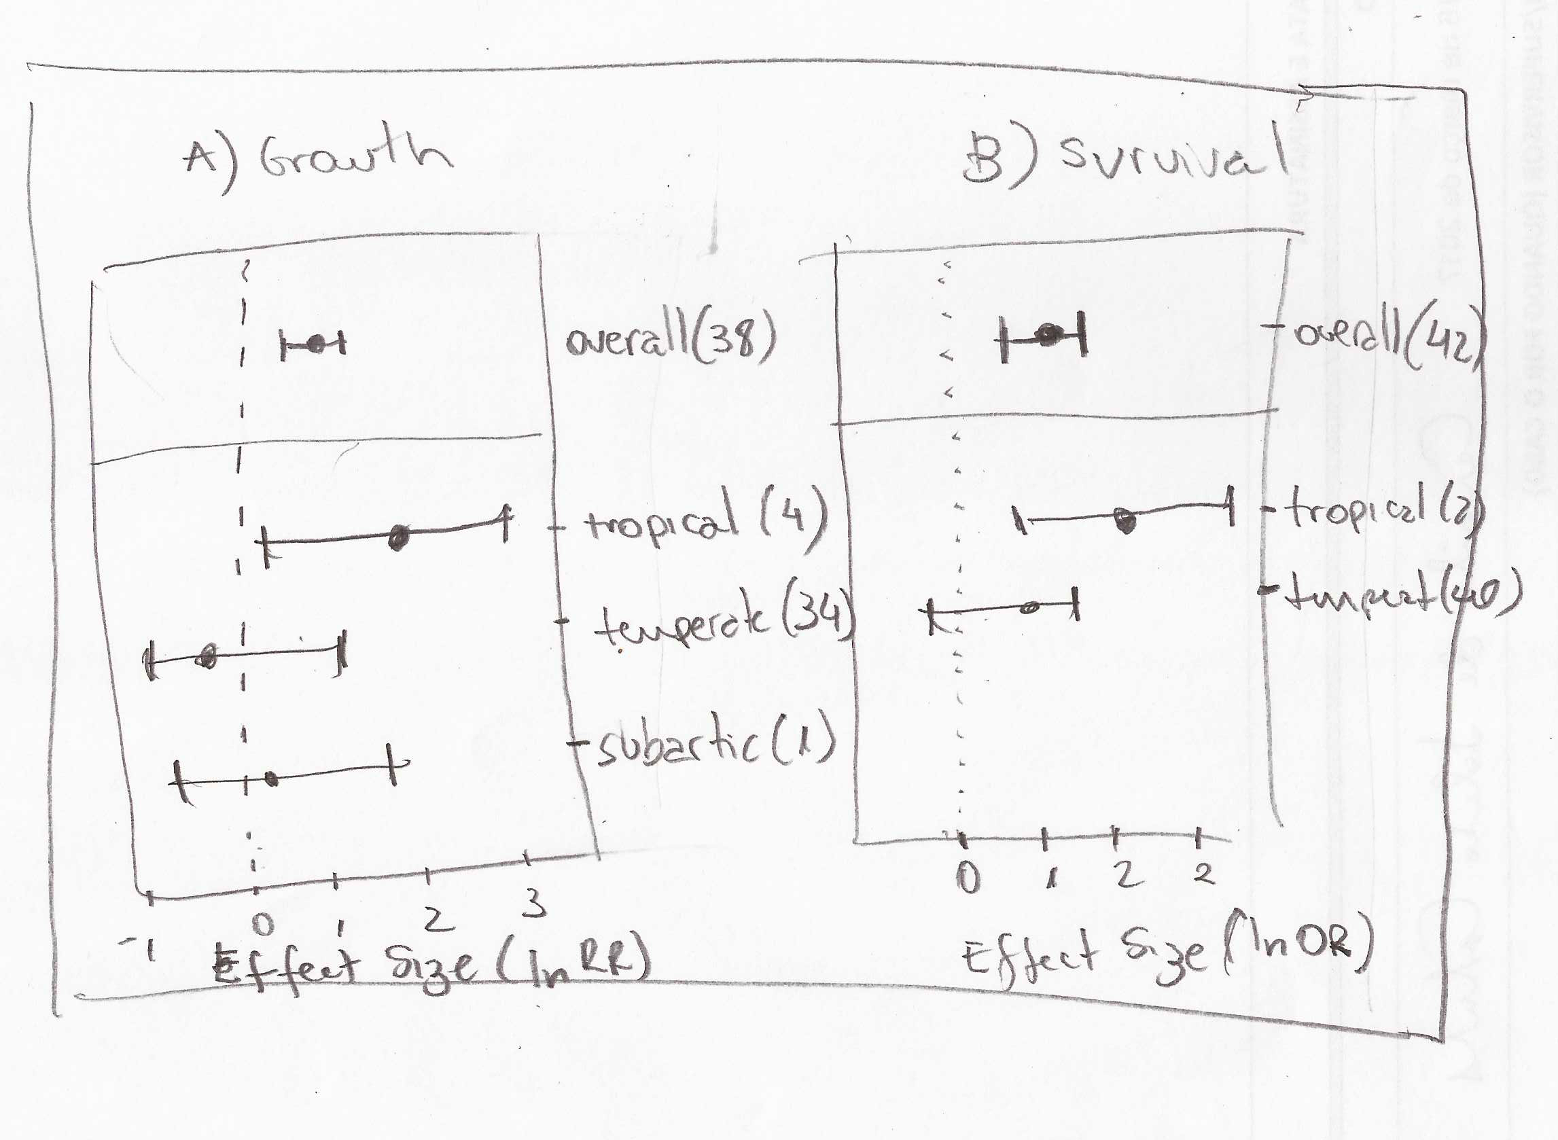 A) Growth
overall (38)
tropical (4)
temperate (34)
subartic (1)
-1 0 1 2 3
Effect Size (ln RR)
B) Survival
overall (42)
tropical (2)
tmpert (40)
0 1 2 2
Effect Size (ln OR)